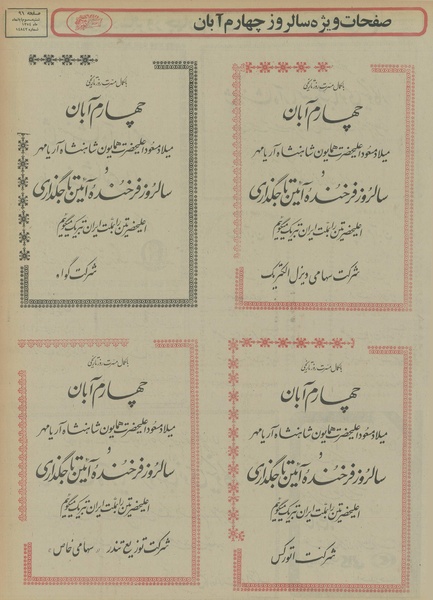 صفحات ویژه سالروز چهارم آبان
صفحه ۹۶
با کمال مسرت روز تاریخی
چهارم آبان
میلاد مسعود اعلیحضرت همایون شاهنشاه آریامهر
و
سالروز فرخنده آئین تاجگذاری
اعلیحضرتین را بملت ایران تبریک میگوئیم
شرکت سهامی دیزل الکتریک
با کمال مسرت روز تاریخی
چهارم آبان
میلاد مسعود اعلیحضرت همایون شاهنشاه آریامهر
و
سالروز فرخنده آئین تاجگذاری
اعلیحضرتین را بملت ایران تبریک میگوئیم
شرکت گواه
با کمال مسرت روز تاریخی
چهارم آبان
میلاد مسعود اعلیحضرت همایون شاهنشاه آریامهر
و
سالروز فرخنده آئین تاجگذاری
اعلیحضرتین را بملت ایران تبریک میگوئیم
شرکت اتورکس
با کمال مسرت روز تاریخی
چهارم آبان
میلاد مسعود اعلیحضرت همایون شاهنشاه آریامهر
و
سالروز فرخنده آئین تاجگذاری
اعلیحضرتین را بملت ایران تبریک میگوئیم
شرکت توزیع تندر «سهامی خاص»